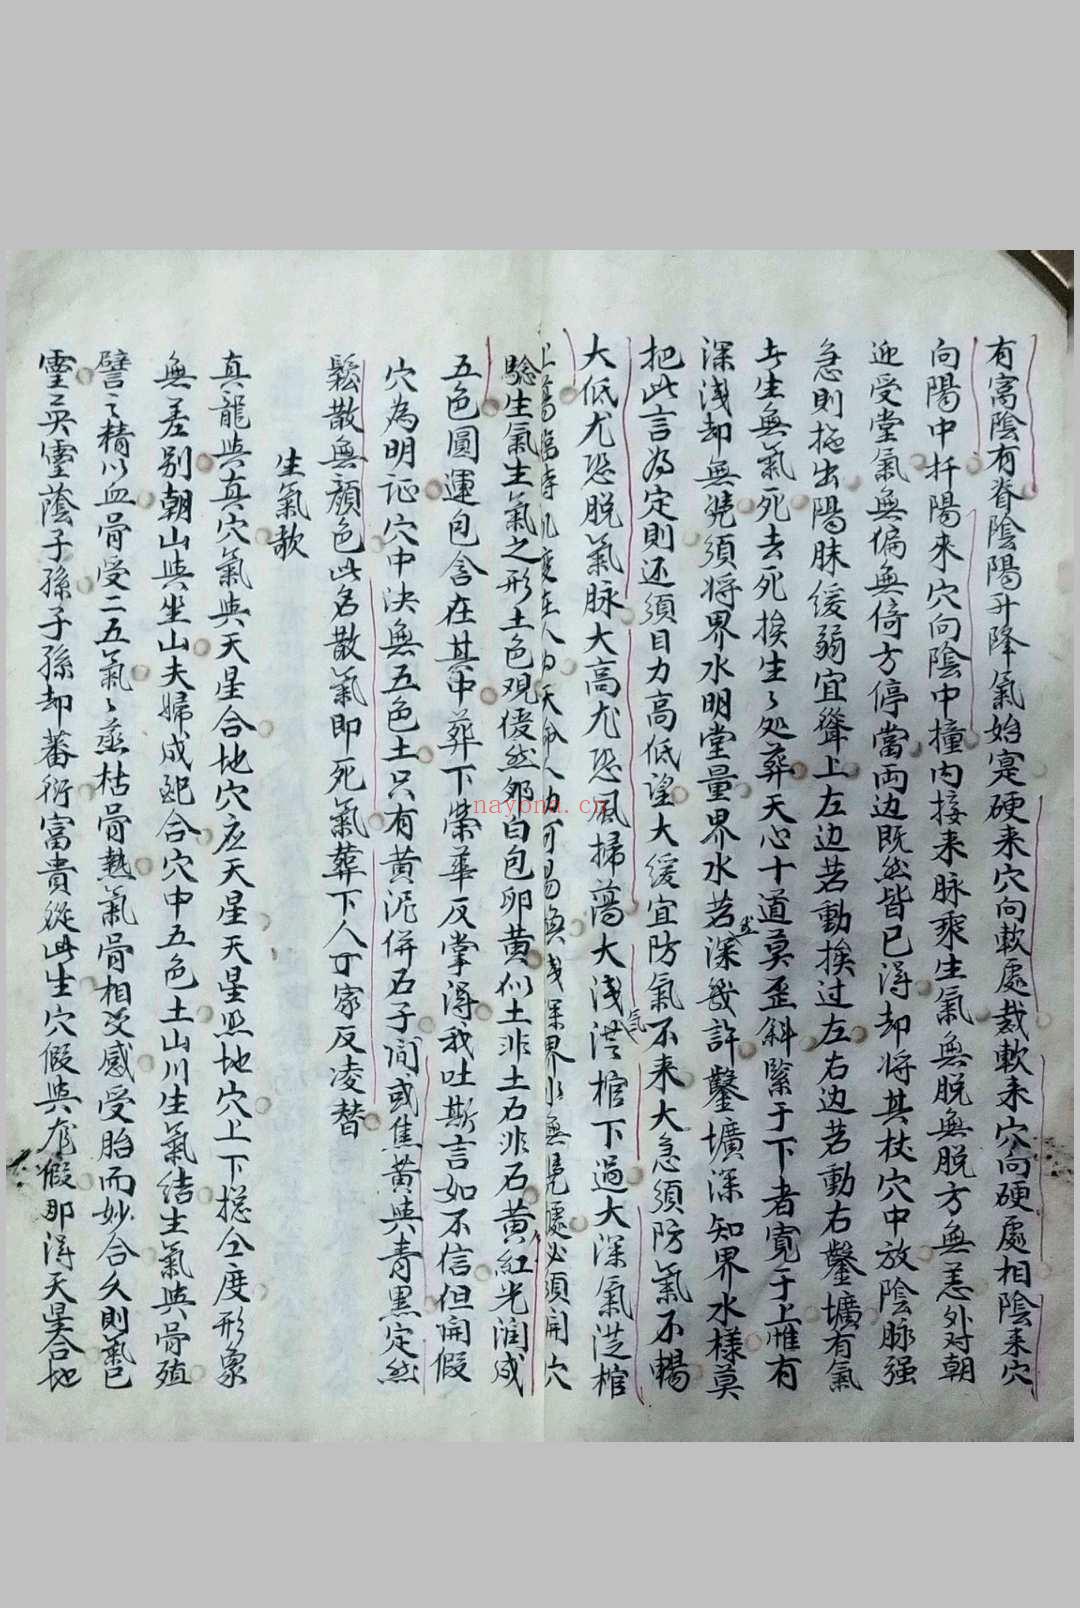 有窩陰有脊陰陽升降氣始寔硬来穴向軟處裁軟来穴向硬處相陰来穴
向陽中扦陽来穴向陰中撞内接来脉乘生氣無脱無脱方無恙外对朝
迎受堂氣無偏無倚方停當両边既然皆已得却将其杖穴中放陰脉强
急則拖出陽脉缓弱宜聳上左边若動挨过左右边若動右鑿壙有氣
生無氣死去死挨生々处葬天心十道莫歪斜緊于下者寛于上惟有
深浅却無凭須将界水明堂量界水若深幾許鑿壙深知界水様莫
把此言為定則还須目力高低望大缓宜防氣不来大急須防氣不暢
大低尤恐脱氣脉大高尤恐風掃蕩大浅氣棺下過大深氣從棺
浅深界水無凭處必須開穴
驗生氣生氣之形土色观優然卵白包卵黄似土非土石非石黄紅光潤成
五色圓運包含在其中葬下榮華反掌得我吐斯言如不信但開假
穴為明证穴中决無五色土只有黄泥併石子间或焦黄與青黒定然
鬆散無顔色此名散氣即死氣葬下人丁家反凌替
生氣歌
真龍與真穴氣與天星合地穴应天星天星照地穴上下捴仝度形象
無差别朝山與坐山夫婦成配合穴中五色土山川生氣结生氣與骨殖
譬之精以血骨受二五氣々蒸枯骨熱氣骨相交感受胎而妙合久則氣已
霊英霊蔭子孫子孫却蕃衍富貴從此生穴假與龙假那得天星合地
nayona.cn